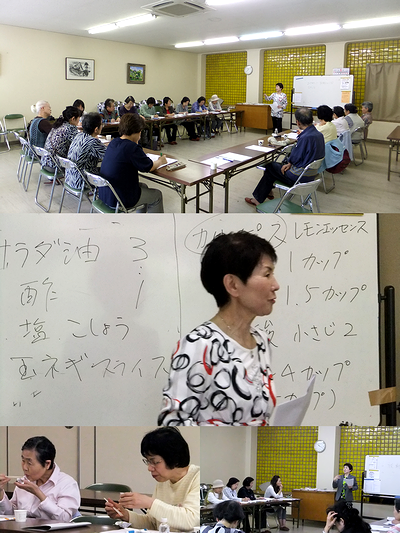 サラダ油 3
酢 1
塩 こしょう
玉ネギスライス
カルピス レモンエッセンス
1カップ
1.5カップ
小さじ2
4カップ
カップ)